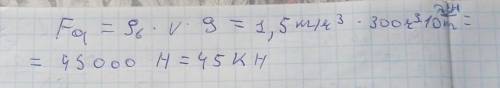 Fа = ρв · v · g = 1,5 т/м³ · 300 м³ · 10 =
= 45000 Н = 45 КН